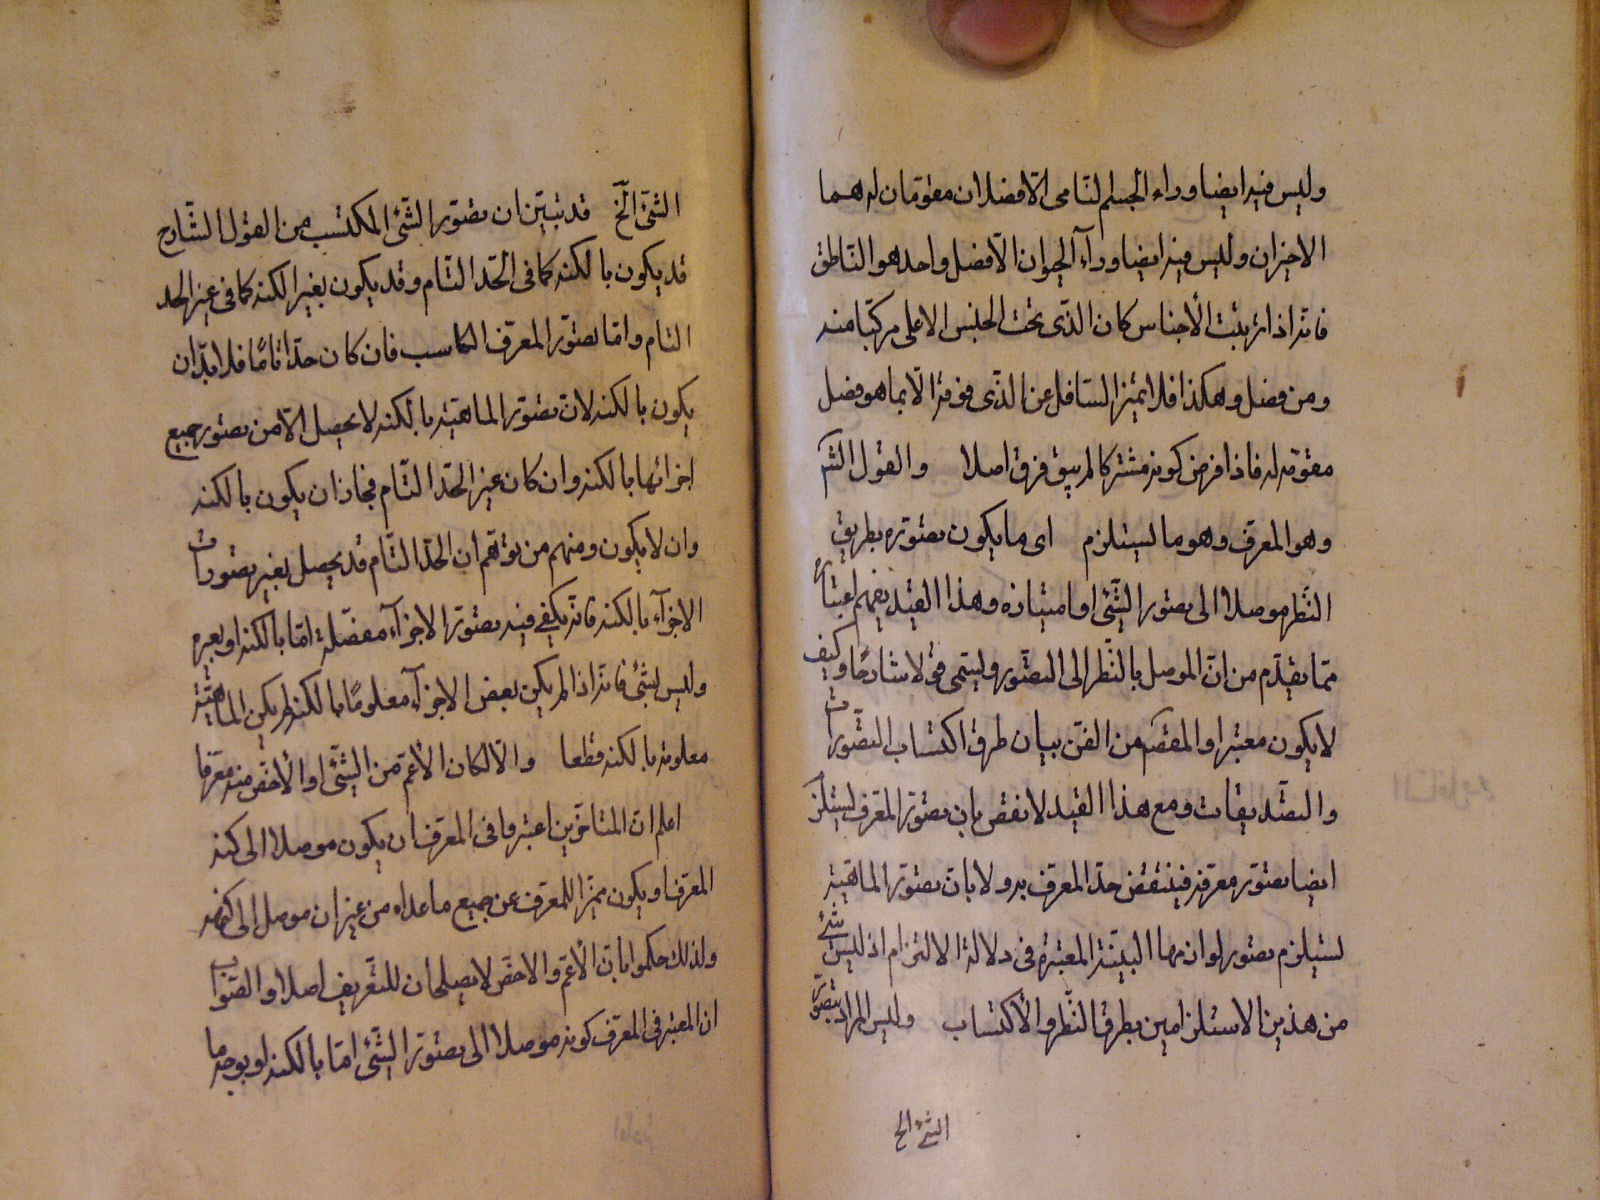 وليس فيه ايضا وراء الجسم النامى الا فضلان مقومان له هما
الاخيران وليس فيه ايضا ورآء الحيوان الا فضل واحد هو الناطق
فانه اذا ترتبت الأجناس كان الذى تحت الجنس الاعلى مركبا منه
ومن فصل وهكذا فلا يتميز السافل عن الذى فوقه الا بما هو فصل
مقوم له فاذا فرض كونه مشتركا لم يبق فرق اصلا والقول الشـ
وهو المعرف وهو ما يستلزم اى ما يكون تصوره بطريق
النظر موصلا الى تصور الشئ او امتيازه وهذا القيد يفهم اعتباره
مما تقدم من ان الموصل بالنظر الى التصور يسمى قولا شارحا وكيف
لا يكون معتبرا والمقصم من الفن بيان طرق اكتساب التصورات
والتصديقات ومع هذا القيد لا نقض بان تصور المعرف يستلزم
ايضا تصور معرفه فينتقض حد المعرف به ولا بان تصور الماهية
يستلزم تصور لوازمها البينة المعتبرة فى دلالة الالتزام اذ ليس شئ
من هذين الاستلزامين بطريق النظر والأكتساب وليس المراد بتصور
الشئ الخ
الشئ الخ قد تبين ان تصور الشئ المكتسب من القول الشارح
قد يكون بالكنه كما فى الحد التام وقد يكون بغير الكنه كما فى غير الحد
التام واما تصور المعرف الكاسب فان كان حدا تاما فلا بد ان
يكون بالكنه لان تصور الماهية بالكنه لا يحصل الا من تصور جميع
اجزائها بالكنه وان كان غير الحد التام فجاز ان يكون بالكنه
وان لا يكون ومنهم من توهم ان الحد التام قد يحصل بغير تصورات
الاجزآء بالكنه فانه يكفى فيه تصور الاجزآء مفصلة اما بالكنه او بغيره
وليس بشئ فانه اذا لم يكن بعض الاجزآء معلوما بالكنه لم يكن الماهية
معلومة بالكنه قطعا والا لكان الأعم من الشئ او الأخص منه معرفا
اعلم ان المتاخرين اعتبروا فى المعرف ان يكون موصلا الى كنه
المعرف او يكون مميزا للمعرف عن جميع ما عداه من غير ان يوصل الى كنهه
ولذلك حكموا بان الأعم والاخص لا يصلحان للتعريف اصلا والصواب
ان المعتبر فى المعرف كونه موصلا الى تصور الشئ اما بالكنه او بوجه ما